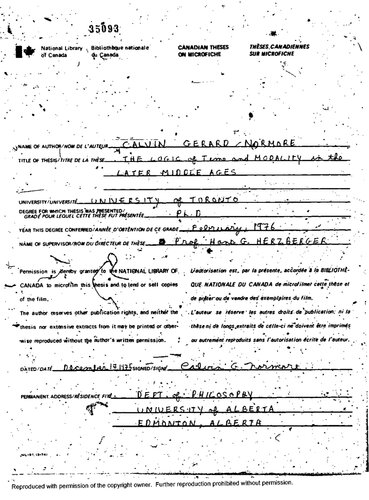 35093
National Library of Canada
Bibliothèque nationale du Canada
CANADIAN THESES ON MICROFICHE
THÈSES CANADIENNES SUR MICROFICHE
NAME OF AUTHOR/NOM DE L'AUTEUR CALVIN GERARD NORMORE
TITLE OF THESIS/TITRE DE LA THÈSE THE LOGIC of Time and MODALITY in the
LATER MIDDLE AGES
UNIVERSITY/UNIVERSITÉ UNIVERSITY of TORONTO
DEGREE FOR WHICH THESIS WAS PRESENTED/
GRADE POUR LEQUEL CETTE THÈSE FUT PRÉSENTÉE Ph.D
YEAR THIS DEGREE CONFERRED/ANNÉE D'OBTENTION DE CE GRADE February, 1976
NAME OF SUPERVISOR/NOM DU DIRECTEUR DE THÈSE Prof Hans G. HERZBERGER
Permission is hereby granted to the NATIONAL LIBRARY OF
CANADA to microfilm this thesis and to lend or sell copies
of the film.
The author reserves other publication rights, and neither the
thesis nor extensive extracts from it may be printed or other-
wise reproduced without the author's written permission.
L'autorisation est, par la présente, accordée à la BIBLIOTHÈ-
QUE NATIONALE DU CANADA de microfilmer cette thèse et
de prêter ou de vendre des exemplaires du film.
L'auteur se réserve les autres droits de publication; ni la
thèse ni de longs extraits de celle-ci ne doivent être imprimés
ou autrement reproduits sans l'autorisation écrite de l'auteur.
DATED/DATÉ December 19, 1975 SIGNED/SIGNÉ Calvin G. Normore
PERMANENT ADDRESS/RÉSIDENCE FIXE DEPT. of PHILOSOPHY
UNIVERSITY of ALBERTA
EDMONTON, ALBERTA
Reproduced with permission of the copyright owner. Further reproduction prohibited without permission.